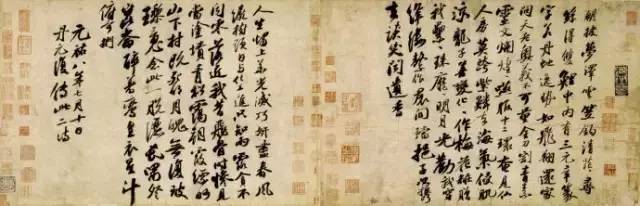 朝披夢澤雲笠釣青茫尋
絲得雙鯉中內有三元章篆
字若丹蛇逸勢如飛翔還家
問天老奧義不可量金刀割青素
靈文爛煌煌嚥服十二環奄見仙
人房莫跨紫鱗去海氣侵肌
涼龍子善變化化作梅花妝贈
我纍珠靡明月光勸我穿
絳縷繫作裙間襠挹子以攜
去談笑聞遺香
人生燭上華光滅巧妍盡春風
繞樹頭日與化工進只知雨露貪不
聞零落近我昔飛骨時慘見
當塗墳青松靄朝霞縹緲
山下村既死明月魄無復玻
瓈魂念此一脫灑長嘯祭
崑崙醉著鸞皇衣星斗
俯可捫
元祐八年七月十日
丹元復傳此二詩